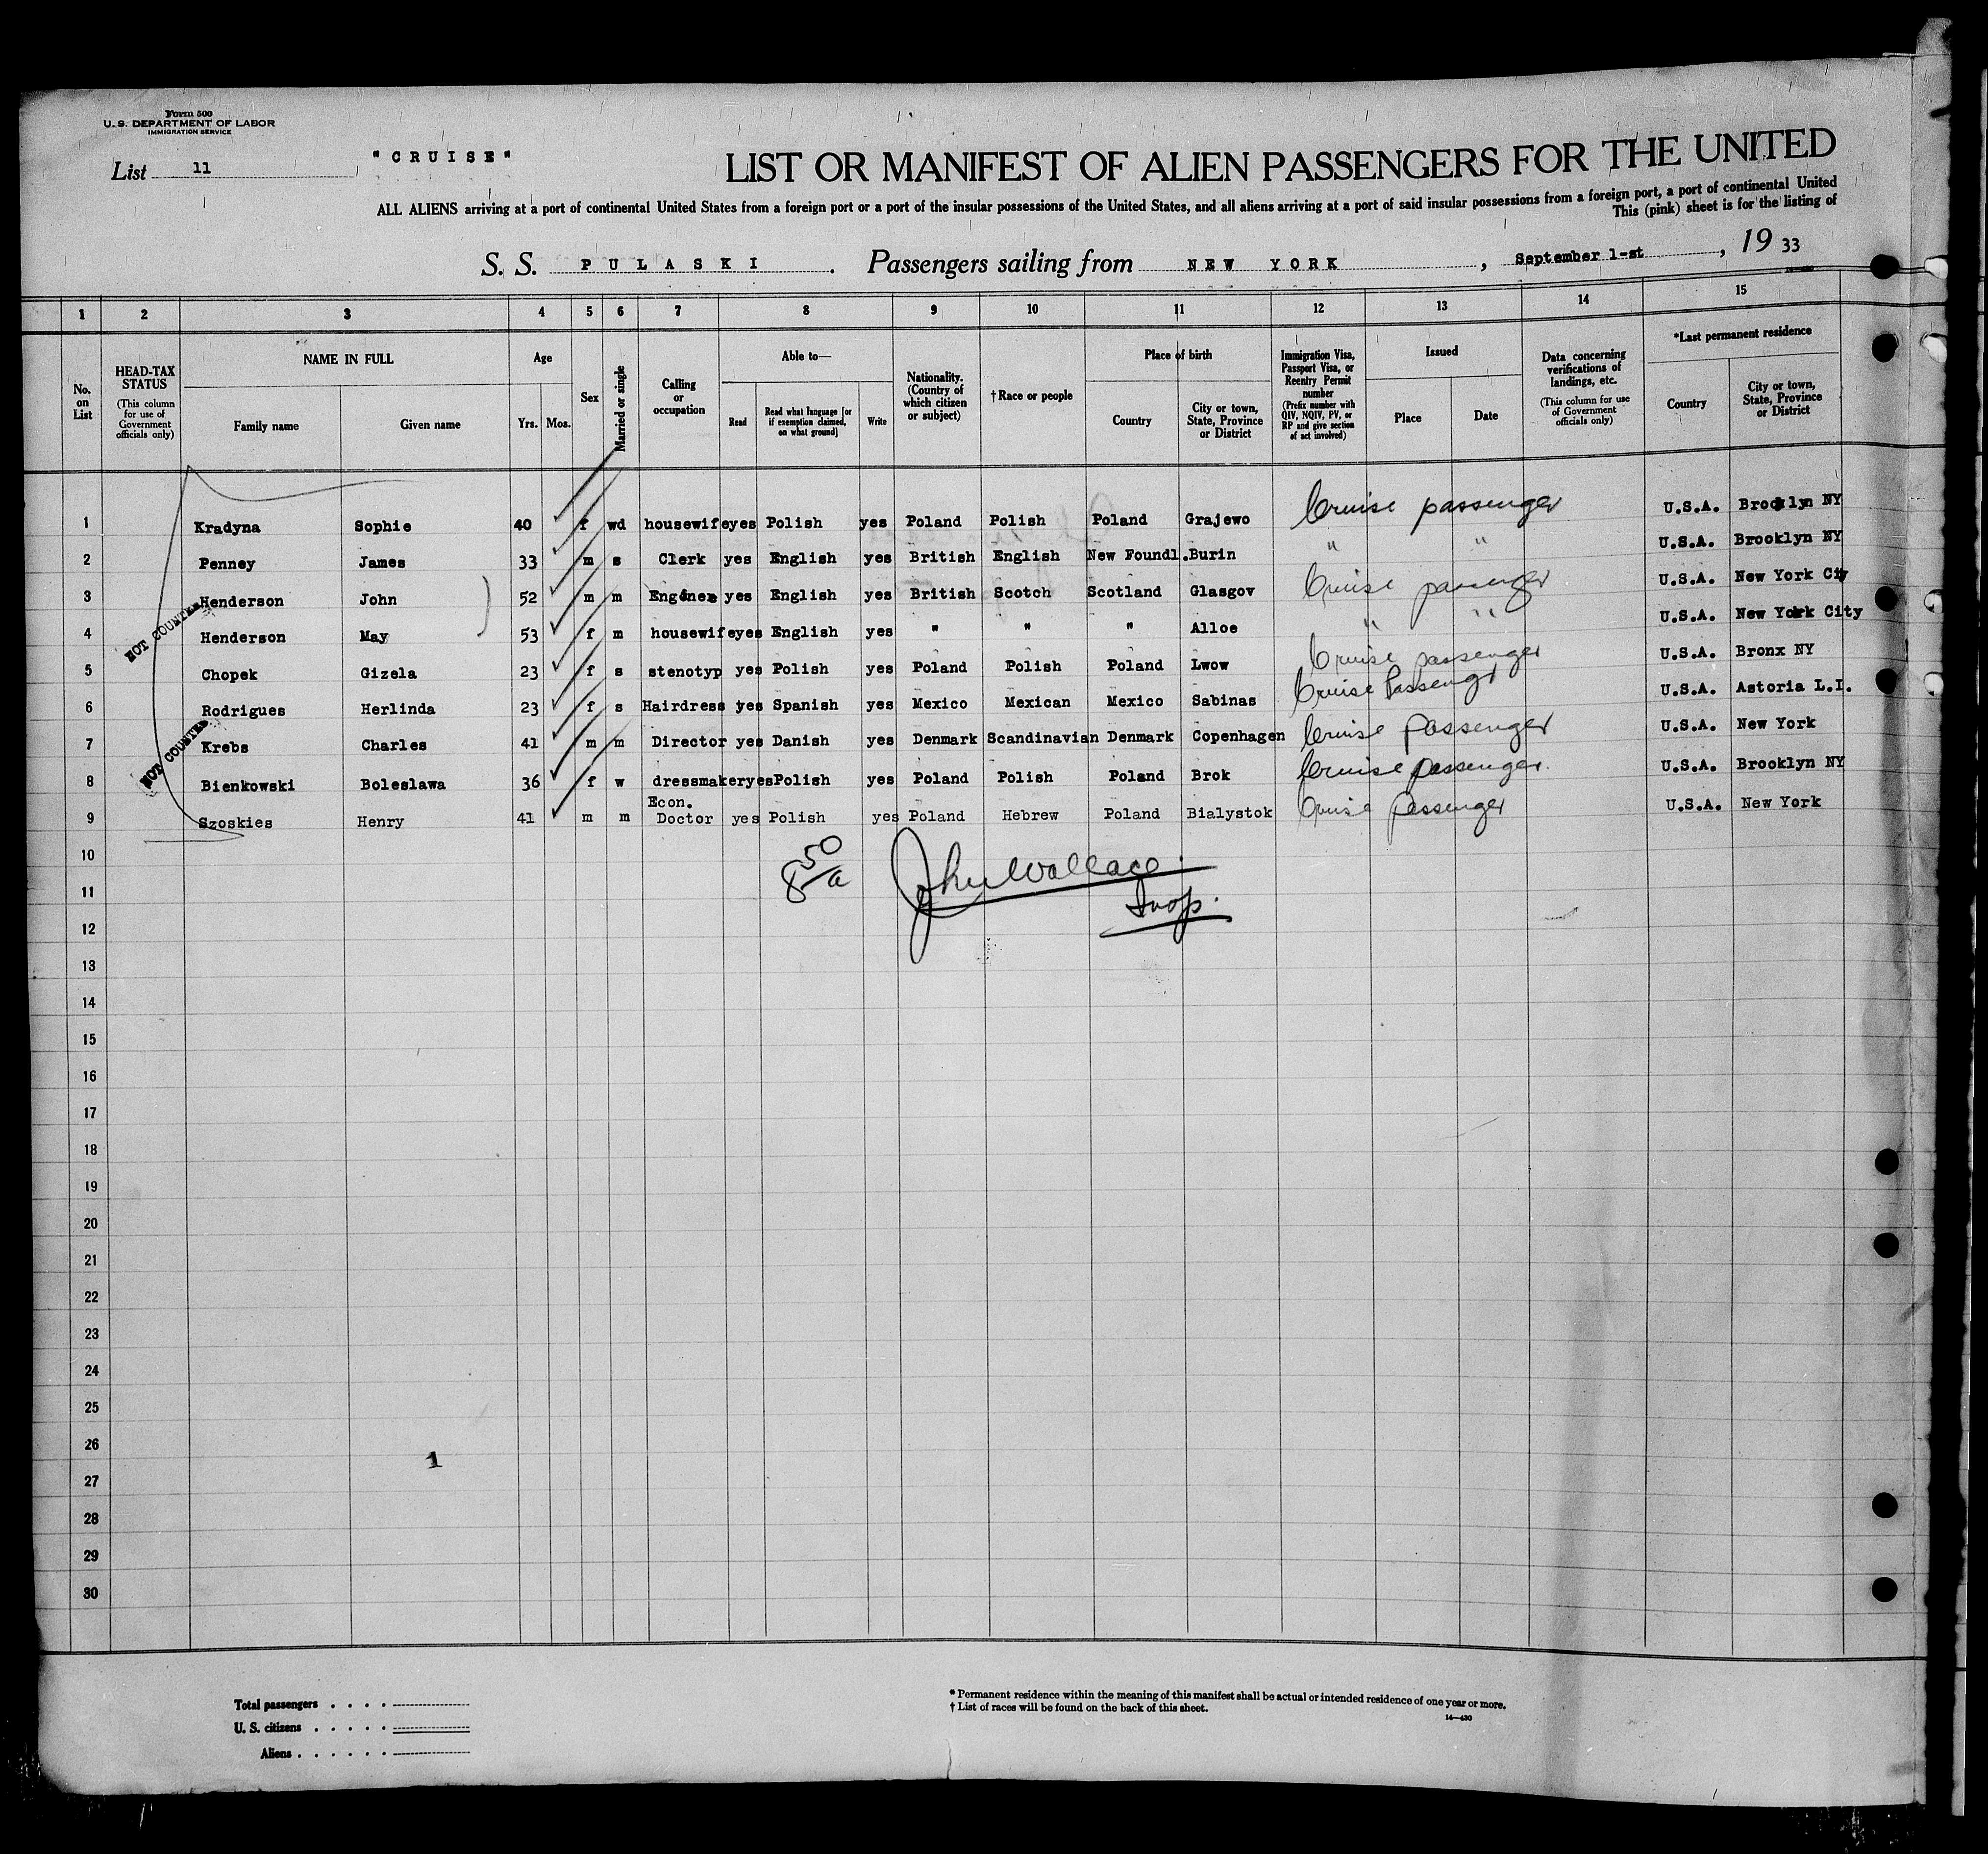 Form 500
U. S. DEPARTMENT OF LABOR
IMMIGRATION SERVICE
List 11
"CRUISE"
LIST OR MANIFEST OF ALIEN PASSENGERS FOR THE UNITED
ALL ALIENS arriving at a port of continental United States from a foreign port or a port of the insular possessions of the United States, and all aliens arriving at a port of said insular possessions from a foreign port, a port of continental United
This (pink) sheet is for the listing of
S. S. PULASKI . Passengers sailing from NEW YORK , September 1-st , 19 33
1 2 3 4 5 6 7 8 9 10 11 12 13 14 15
No. on List
HEAD-TAX STATUS (This column for use of Government officials only)
NAME IN FULL
Family name
Given name
Age
Yrs. Mos.
Sex
Married or single
Calling or occupation
Able to—
Read
Read what language [or if exemption claimed, on what ground]
Write
Nationality. (Country of which citizen or subject)
†Race or people
Place of birth
Country
City or town, State, Province or District
Immigration Visa, Passport Visa, or Reentry Permit number (Prefix number with QIV, NQIV, PV, or RP and give section of act involved)
Issued
Place
Date
Data concerning verifications of landings, etc. (This column for use of Government officials only)
*Last permanent residence
Country
City or town, State, Province or District
1 Kradyna Sophie 40 f wd housewife yes Polish yes Poland Polish Poland Grajewo Cruise passenger U.S.A. Brooklyn NY
2 Penney James 33 m s Clerk yes English yes British English New Foundl. Burin " " U.S.A. Brooklyn NY
3 Henderson John 52 m m Enginee yes English yes British Scotch Scotland Glasgov Cruise passenger U.S.A. New York City
NOT COUNTED
4 Henderson May 53 f m housewife yes English yes " " " Alloe " " U.S.A. New York City
5 Chopek Gizela 23 f s stenotyp yes Polish yes Poland Polish Poland Lwow Cruise passenger U.S.A. Bronx NY
6 Rodrigues Herlinda 23 f s Hairdress yes Spanish yes Mexico Mexican Mexico Sabinas Cruise Passengr U.S.A. Astoria L.I.
NOT COUNTED
7 Krebs Charles 41 m m Director yes Danish yes Denmark Scandinavian Denmark Copenhagen Cruise Passenger U.S.A. New York
8 Bienkowski Boleslawa 36 f w dressmaker yes Polish yes Poland Polish Poland Brok Cruise passenger. U.S.A. Brooklyn NY
9 Szoskies Henry 41 m m Econ. Doctor yes Polish yes Poland Hebrew Poland Bialystok Cruise passenger U.S.A. New York
10
8 50/a John Wallace
11
Insp.
12
13
14
15
16
17
18
19
20
21
22
23
24
25
26
1
27
28
29
30
Total passengers . . . .
U. S. citizens . . . . .
Aliens . . . . . .
* Permanent residence within the meaning of this manifest shall be actual or intended residence of one year or more.
† List of races will be found on the back of this sheet.
14—430